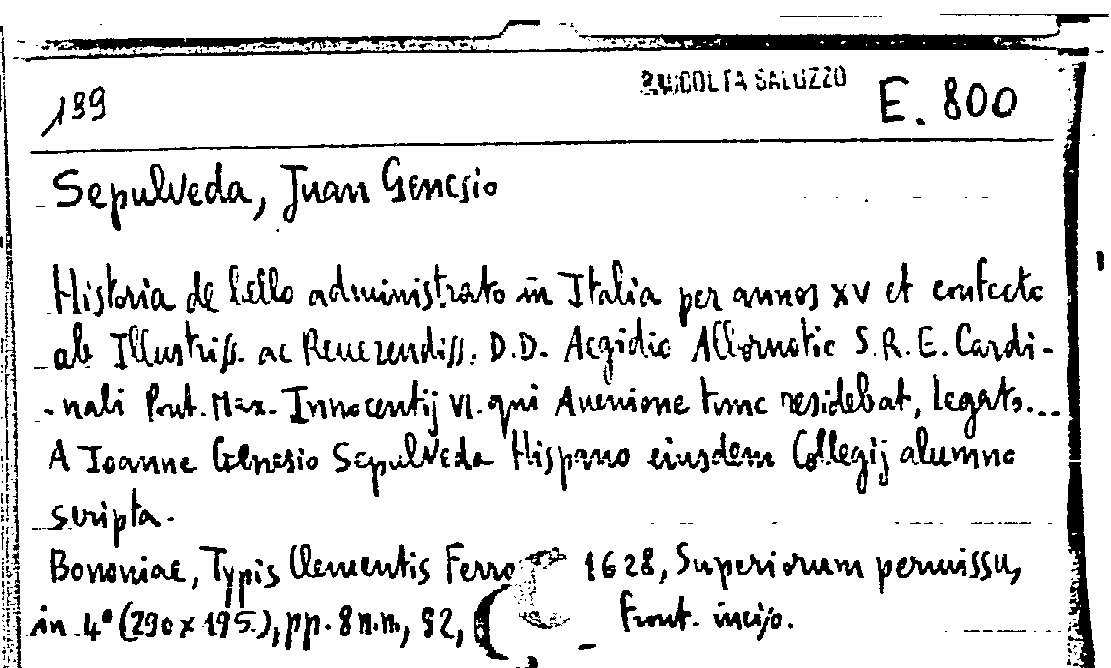 139
RACCOLTA SALUZZO
E. 800
Sepulveda, Juan Genesio
Historia de bello administrato in Italia per annos XV et confecto
ab Illustriss. ac Reuerendiss. D.D. Aegidio Albornotio S.R.E. Cardi-
-nali Pont. Max. Innocentij VI. qui Auenione tunc residebat, Legato...
A Ioanne Genesio Sepulveda Hispano eiusdem Collegij alumno
scripta.
Bononiae, Typis Clementis Ferro 1628, Superiorum permissu,
in 4° (290x195), pp. 8 n.n., 92, Front. inciso.